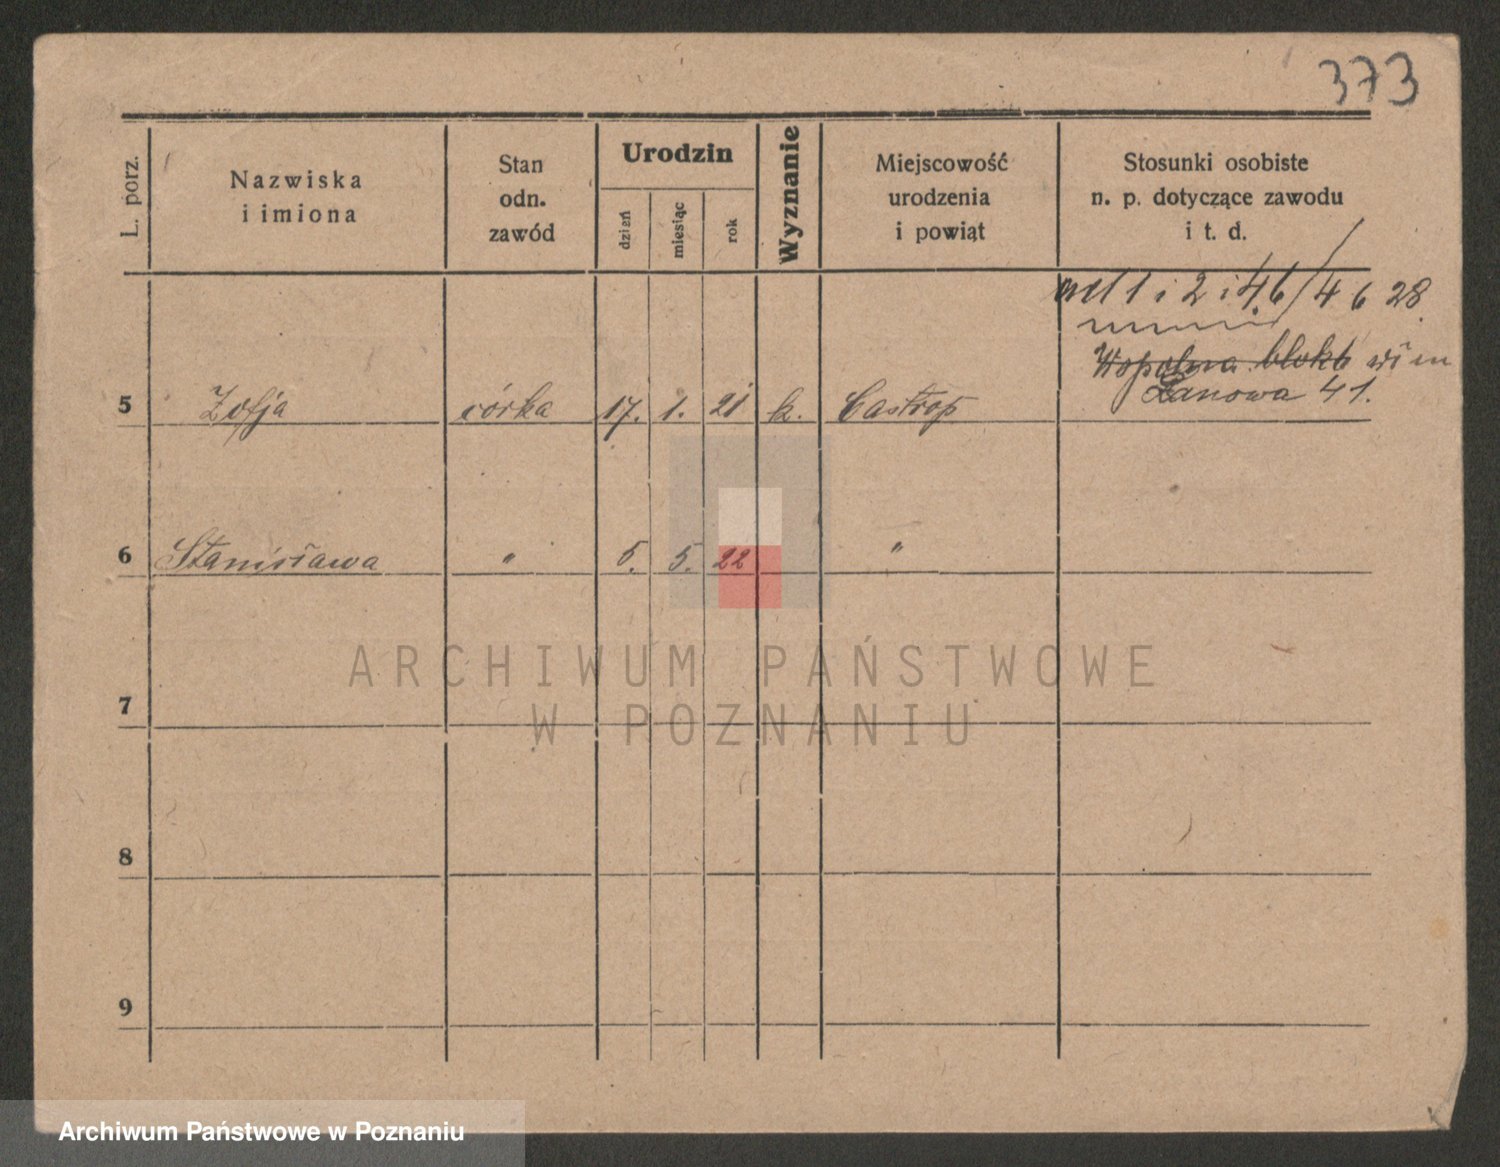 373
L. porz.
Nazwiska
i imiona
Stan
odn.
zawód
Urodzin
dzień
miesiąc
rok
Wyznanie
Miejscowość
urodzenia
i powiąt
Stosunki osobiste
n. p. dotyczące zawodu
i t. d.
1 i 2 i 4. 6 / 4 6 28
Łanowa 41.
5 Zofja córka 17. 1. 21 k. Castrop
6 Stanisława " 5. 5. 22 "
7
8
9
ARCHIWUM PAŃSTWOWE
W POZNANIU
Archiwum Państwowe w Poznaniu